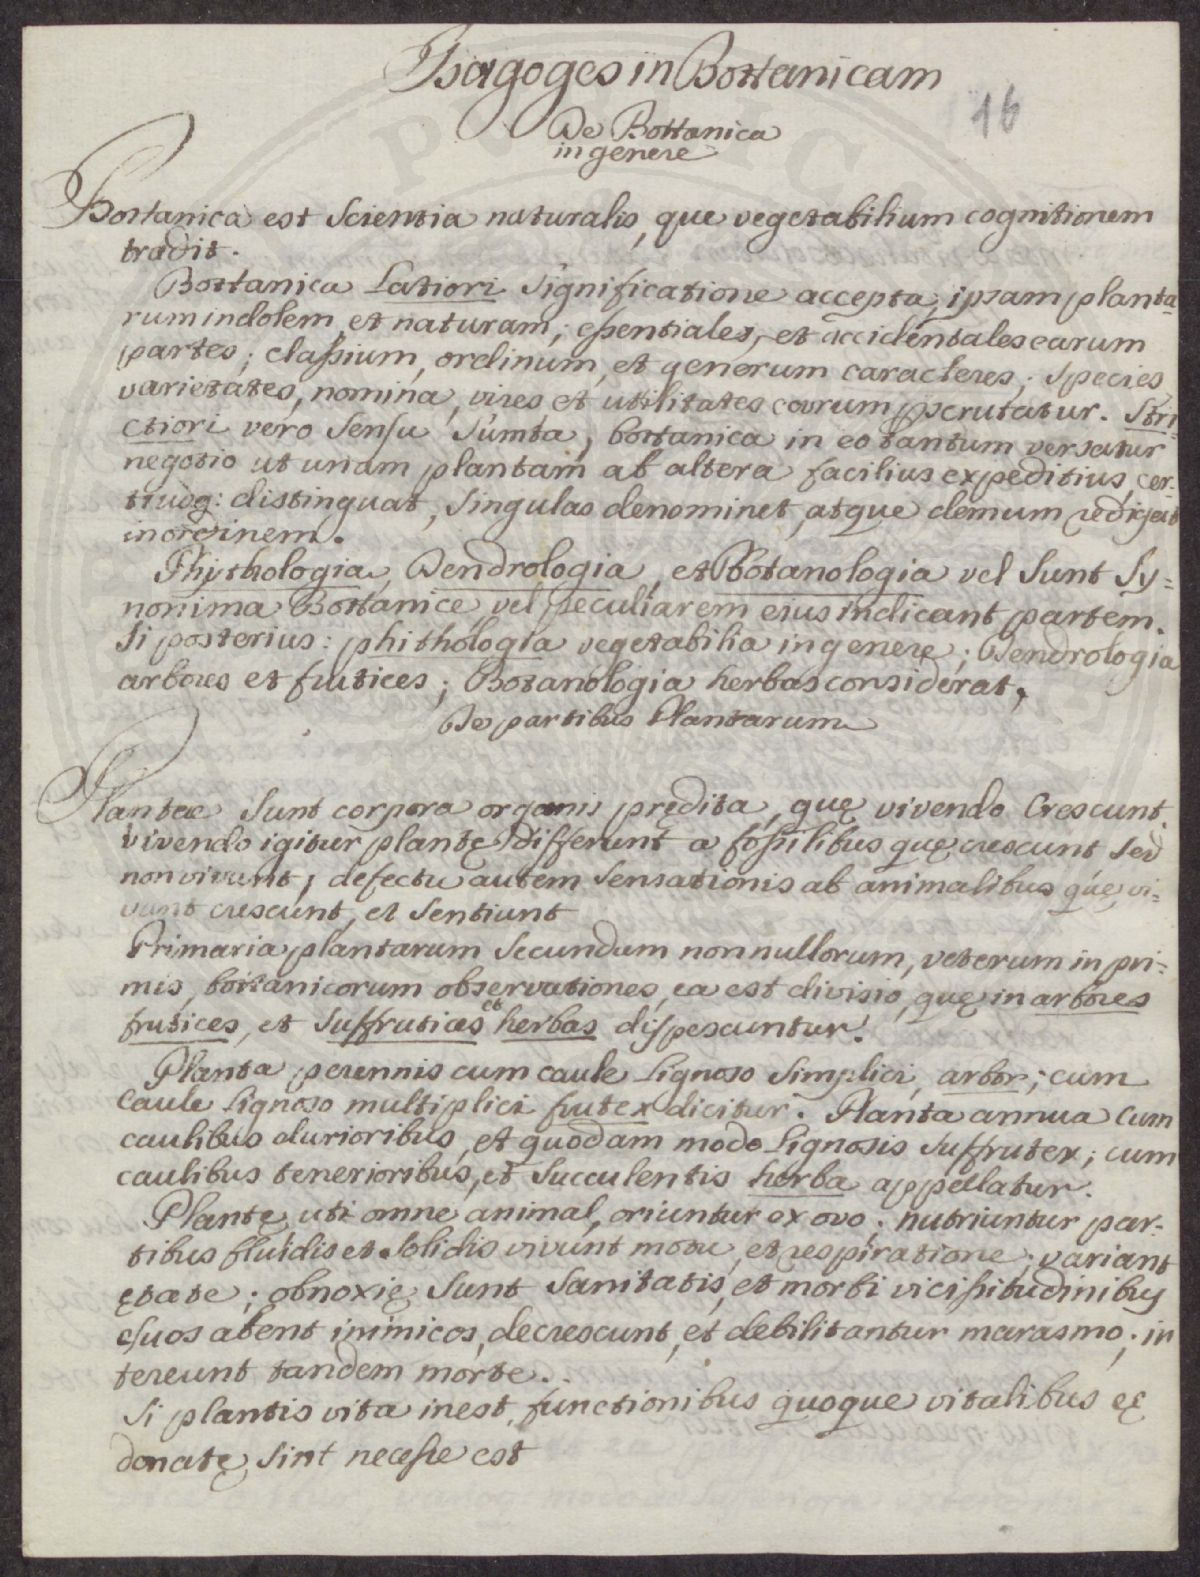 Isagoges in Bottanicam
16
De Bottanica
in genere
Bottanica est Scientia naturalis, que vegetabilium cognitionem
tradit.
Bottanica Latiori Significatione accepta, ipsam planta-
rum indolem et naturam; essentiales, et accidentales earum
partes; classium, ordinum, et generum caracteres; Species
varietates, nomina, vires et utilitates eorum perscrutatur. Stri-
ctiori vero Sensu Sumta, bottanica in eo tantum versatur
negotio ut unam plantam ab altera facilius expeditius, cer-
tiusq: distinguat, Singulas denominet, atque demum redigat
in ordinem.
Phythologia, Dendrologia, et Botanologia vel Sunt Sy-
nonima Bottanice, vel peculiarem eius indicant partem.
Si posterius: phithologia vegetabilia in genere; Dendrologia
arbores et frutices; Botanologia herbas considerat.
De partibus Plantarum
Plantae Sunt corpora organis prędita, quę vivendo Crescunt.
vivendo igitur plantę differunt a fossilibus quę crescunt Sed
non vivunt; defectu autem Sensationis ab animalibus quę vi-
vunt crescunt, et Sentiunt
Primaria plantarum Secundum nonnullorum, veterum in pri-
mis, bottanicorum observationes, ea est divisio, quę in arbores
frutices, et Suffrutices et herbas dispescuntur.
Planta perennis cum caule Lignoso Simplici, arbor; cum
Caule Lignoso multiplici frutex dicitur. Planta annua cum
caulibus durioribus, et quodam modo Lignosis Suffrutex; cum
caulibus tenerioribus, et Succulentis herba appellatur.
Plantę uti omne animal, oriuntur ex ovo. nutriuntur par-
tibus fluidis et Solidis vivunt motu, et respiratione; variant
ętate; obnoxię Sunt Sanitatis, et morbi vicissitudinibus
Suos abent inimicos, decrescunt, et debilitantur marasmo; in
tereunt tandem morte.
Si plantis vita inest, functionibus quoque vitalibus ę
donatę Sint necesse est